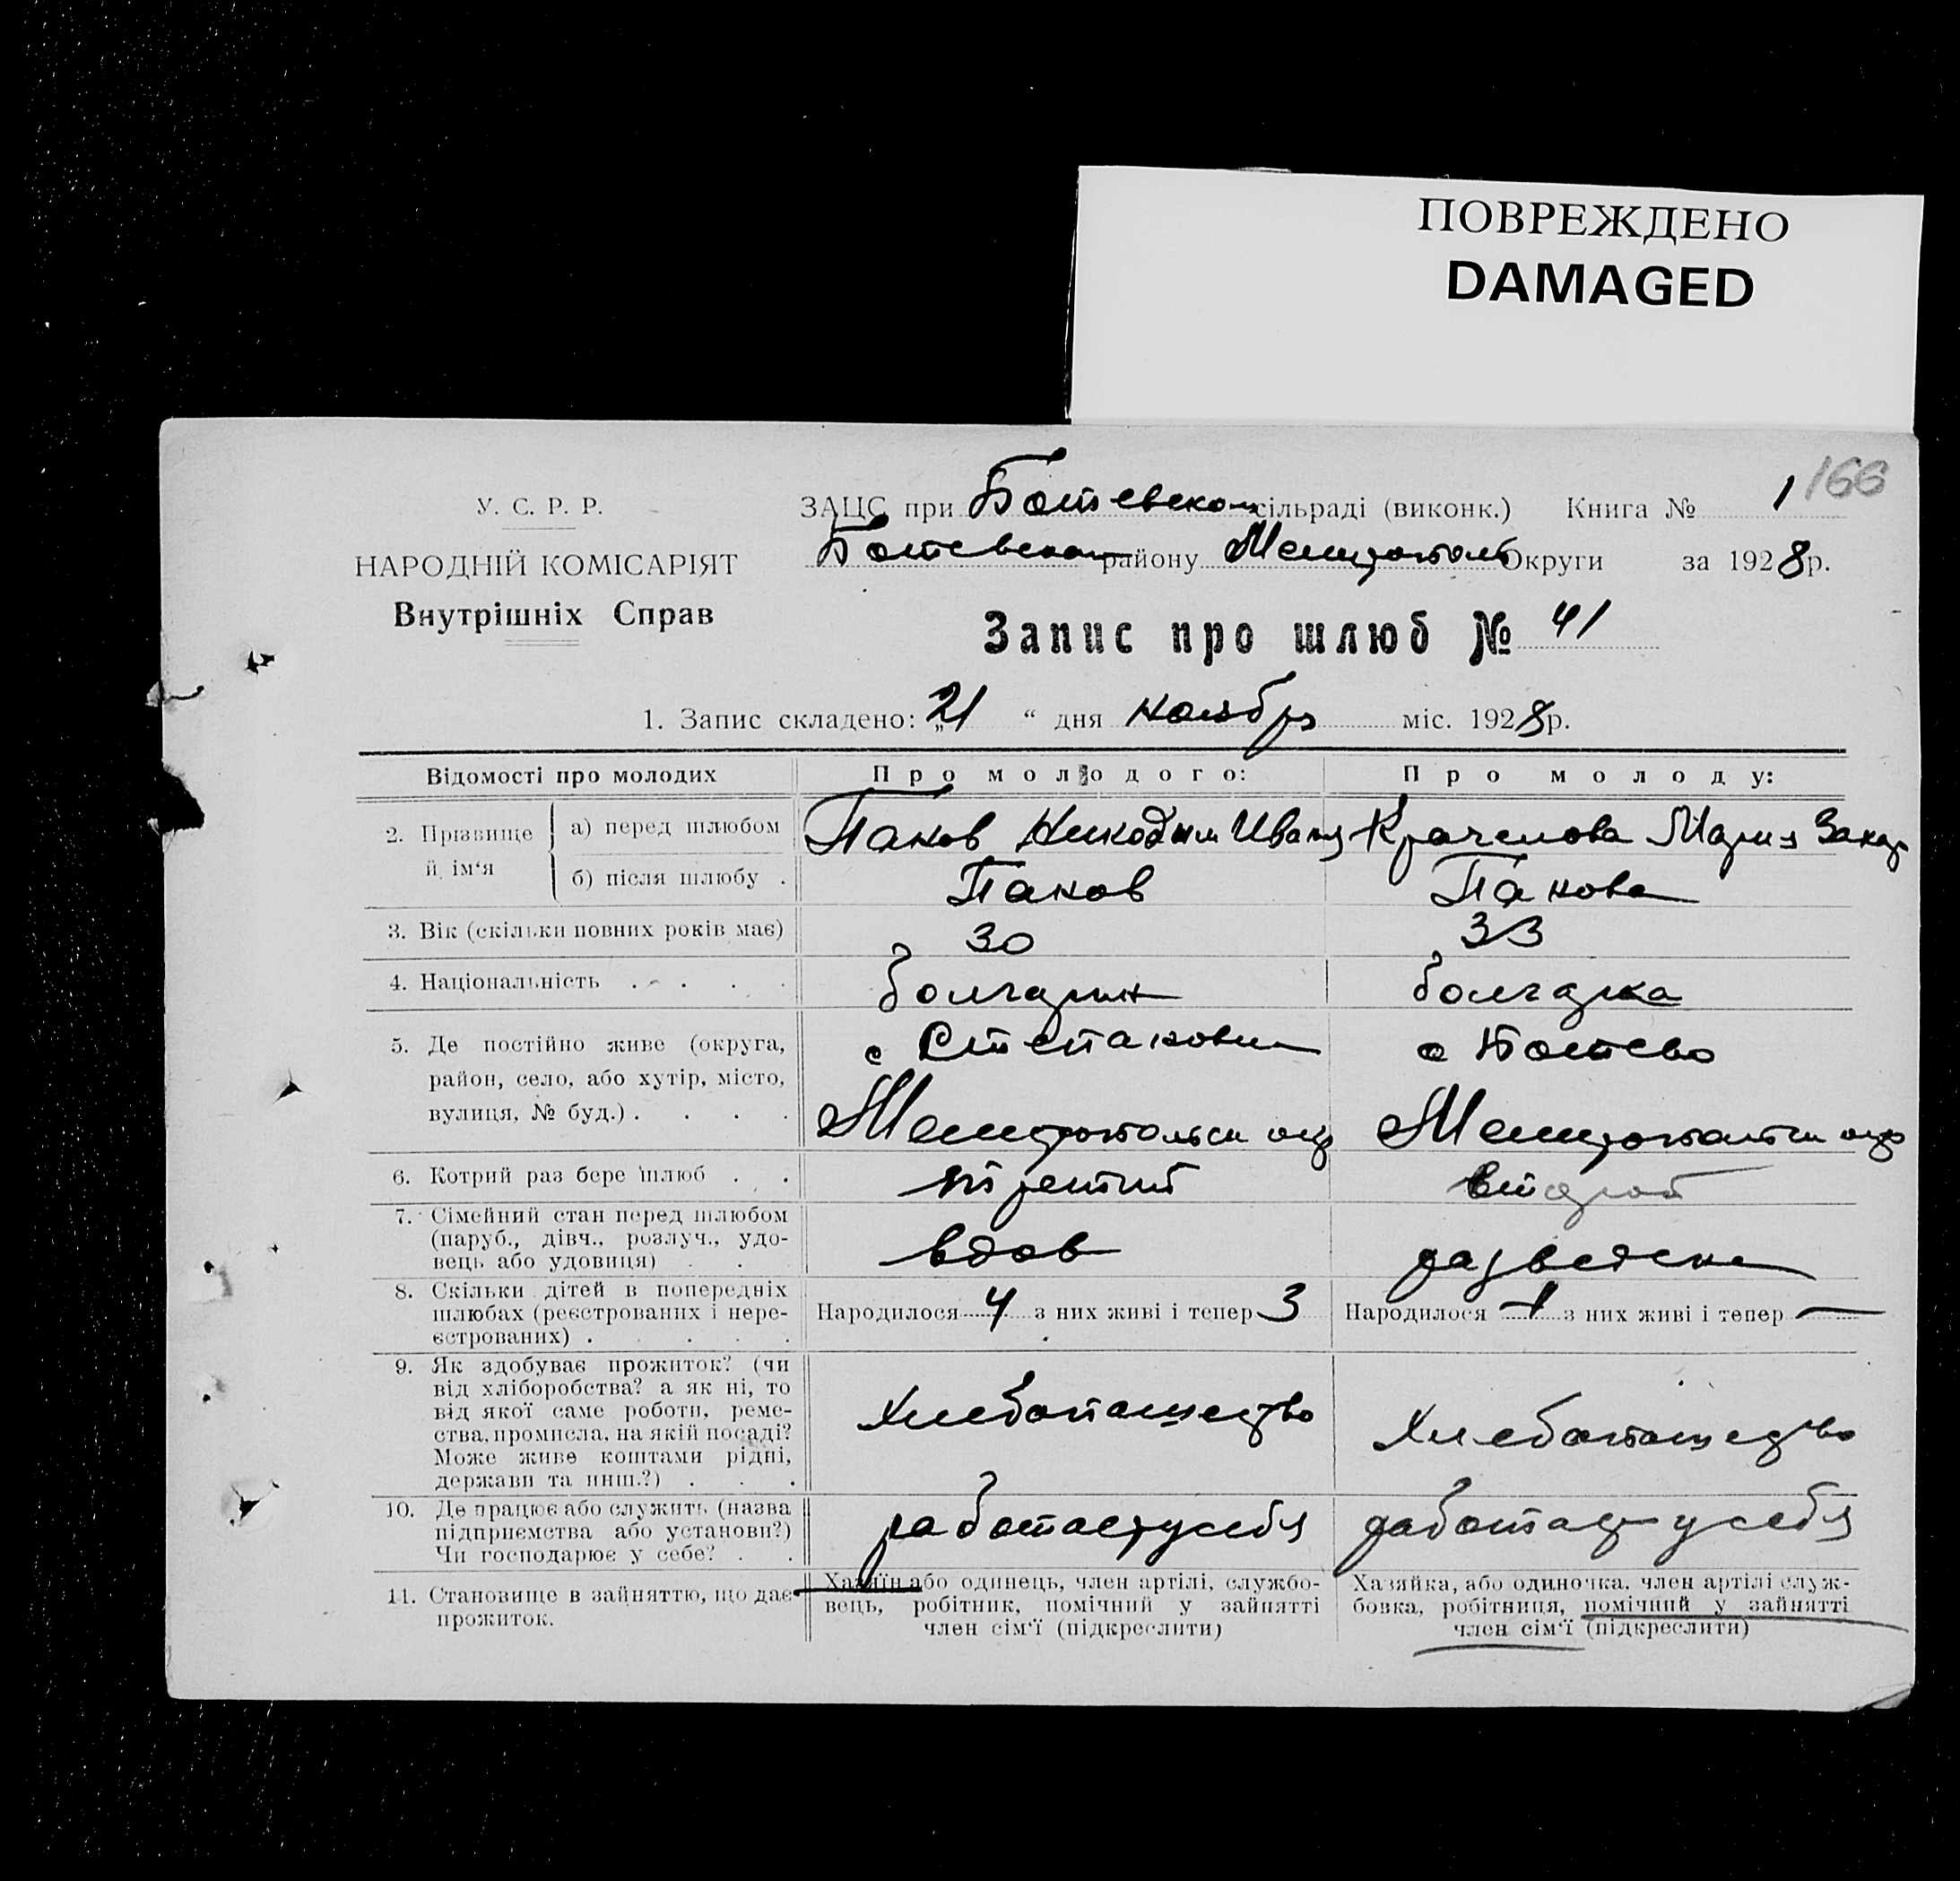 ПОВРЕЖДЕНО
DAMAGED
166
У. С. Р. Р.
НАРОДНІЙ КОМІСАРІЯТ
Внутрішніх Справ
ЗАЦС при Ботевском сільраді (виконк.) Книга № 1
Ботевском району Мелитополь Округи за 1928 р.
Запис про шлюб № 41
1. Запис складено: „21“ дня ноября міс. 1928 р.
Відомості про молодих Про молодого: Про молоду:
2. Прізвище й ім‘я
а) перед шлюбом Панов Никодим Иван Крачунова Мария Захар
б) після шлюбу . Панов Панова
3. Вік (скільки повних років має) 30 33
4. Національність . . . . болгарин болгарка
5. Де постійно живе (округа, район, село, або хутір, місто, вулиця, № буд.) . . . .
с Степановка с Ботево
Мелитопольск окр Мелитопольск окр
6. Котрий раз бере шлюб . . третий второй
7. Сімейний стан перед шлюбом
(паруб., дівч., розлуч., удо-
вець або удовиця) . . . вдов разведена
8. Скільки дітей в попередніх
шлюбах (реєстрованих і нере-
єстрованих) . . . . .
Народилося 4 з них живі і тепер 3 Народилося 1 з них живі і тепер —
9. Як здобуває прожиток? (чи
від хліборобства? а як ні, то
від якої саме роботи, реме-
ства, промисла, на якій посаді?
Може живе коштами рідні,
держави та инш.?) . . .
Хлебопашество Хлебопашество
10. Де працює або служить (назва
підприємства або установи?)
Чи господарює у себе? . .
работает у себя работает у себя
11. Становище в зайняттю, що дає
прожиток.
Хазяїн або одинець, член артілі, службо-
вець, робітник, помічний у зайнятті
член сім‘ї (підкреслити)
Хазяйка, або одиночка, член артілі служ-
бовка, робітниця, помічний у зайнятті
член сім‘ї (підкреслити)